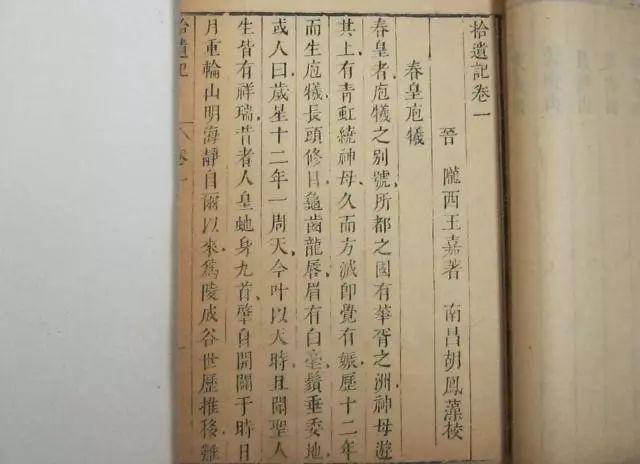 拾遺記卷一
晉 隴西王嘉著 南昌胡鳳藻校
春皇庖犧
春皇者庖犧之别號所都之國有華胥之洲神母遊
其上有青虹繞神母久而方滅即覺有娠歷十二年
而生庖犧長頭修目龜齒龍唇眉有白毫鬚垂委地
或人曰歲星十二年一周天今叶以天時且聞聖人
生皆有祥瑞昔者人皇虵身九首肇自開闢于時日
月重輪山明海靜自爾以來爲陵成谷世歷推移難
拾遺記 卷一